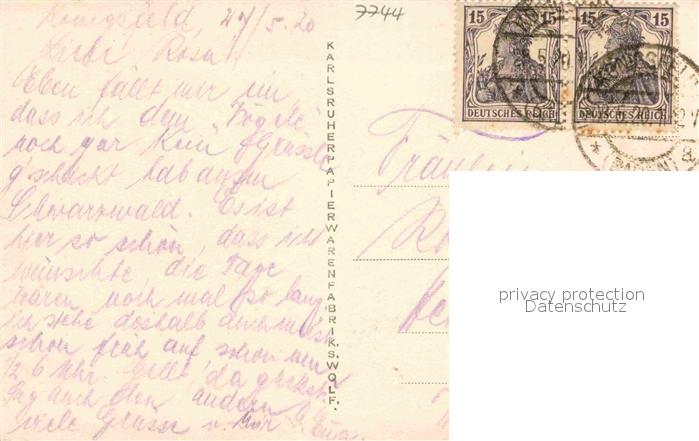 Königsfeld, 27/5.20
7744
Liebe Rosa!
Eben fällt mir ein
dass ich dem Vögele
noch gar kein Grüssle
g'schickt hab aus dem
Schwarzwald. Es ist
hier so schön, dass ich
wünschte die Tage
wären noch mal so lang
ich stehe deshalb auch
schon früh auf schon um
1/2 6 Uhr. Gellt, da
Sag auch den andern
Viele Grüsse v. Mir
KARLSRUHER PAPIERWARENFABRIK S. WOLF.
15 15
DEUTSCHES REICH
15 15
DEUTSCHES REICH
(BADEN)
Fräulein
privacy protection
Datenschutz